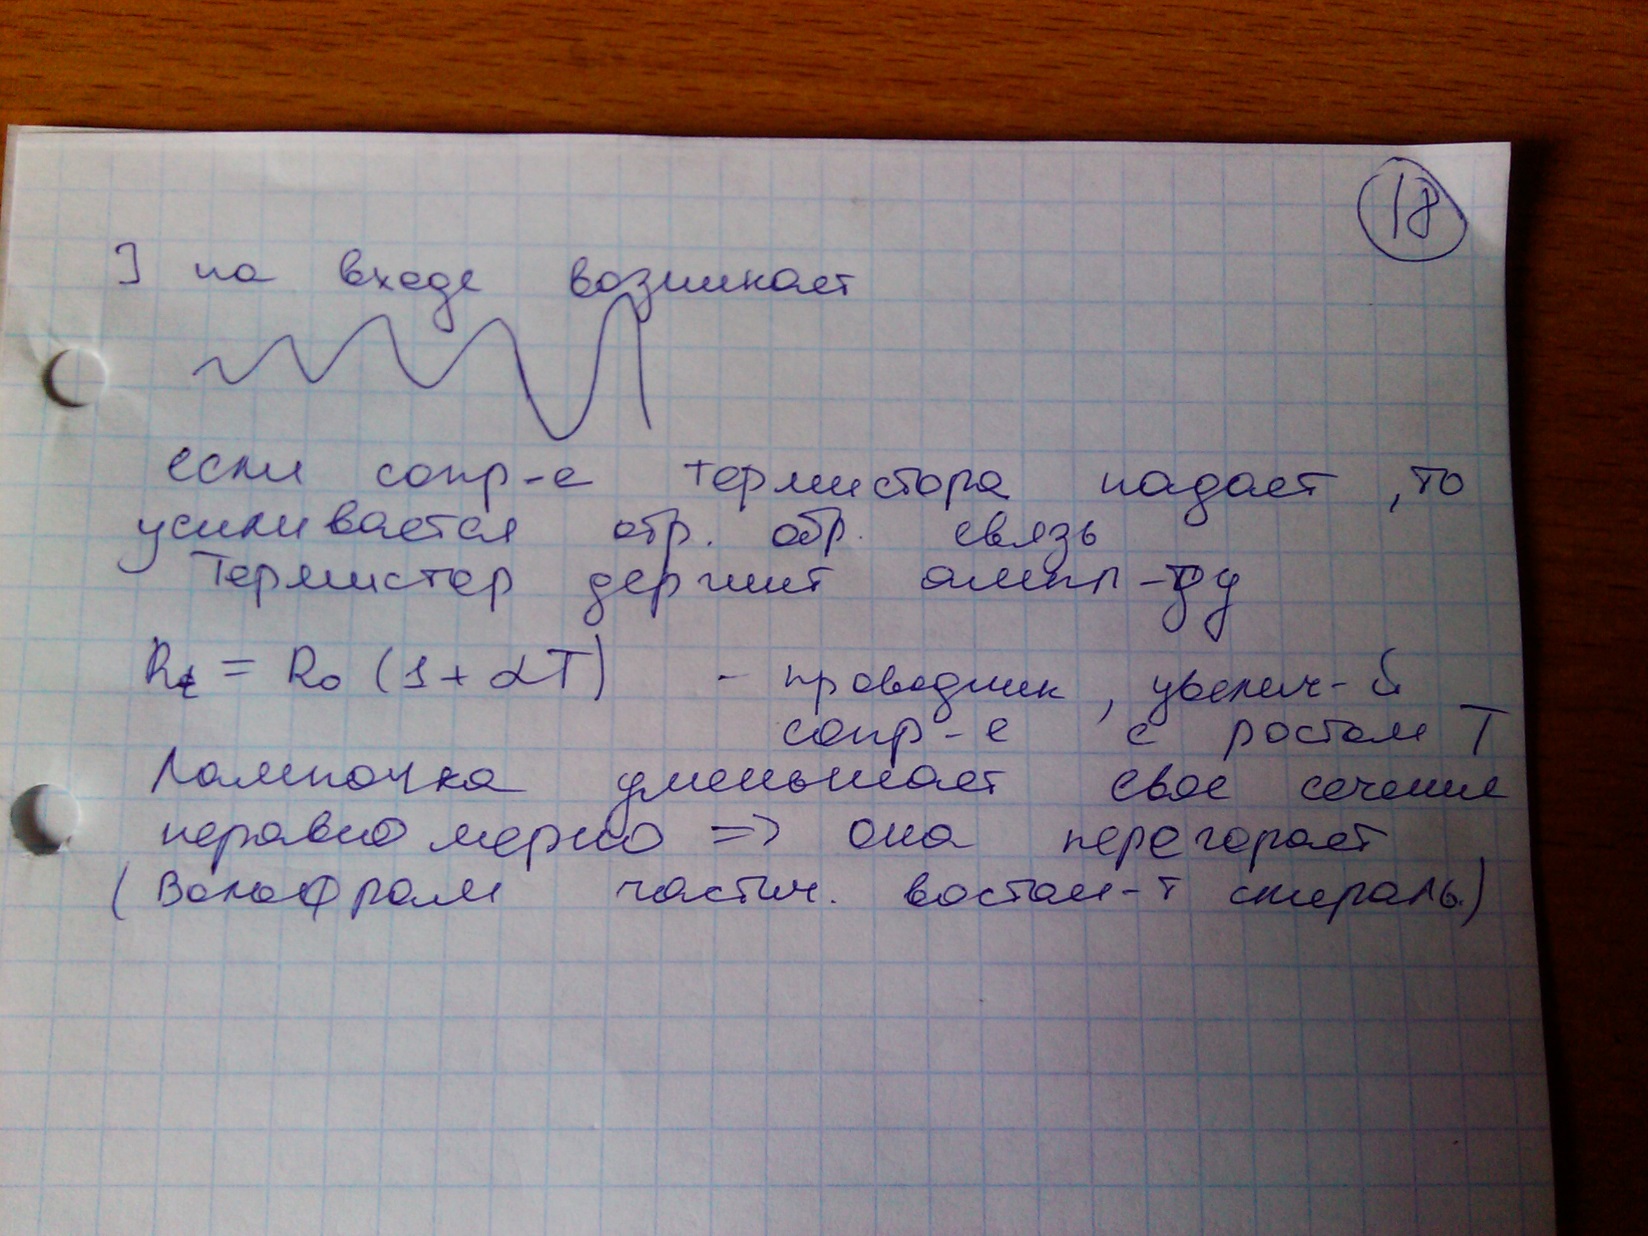 18
] на входе возникает
если сопр-е термистора падает, то
усиливается отр. обр. связь
Термистор держит ампл-ту
Rt = R0 (1 + αT) - проводник, увелич-й
сопр-е с ростом T
Лампочка уменьшает свое сечение
неравномерно => она перегорает
(Волофрам частич. востан-т спираль)